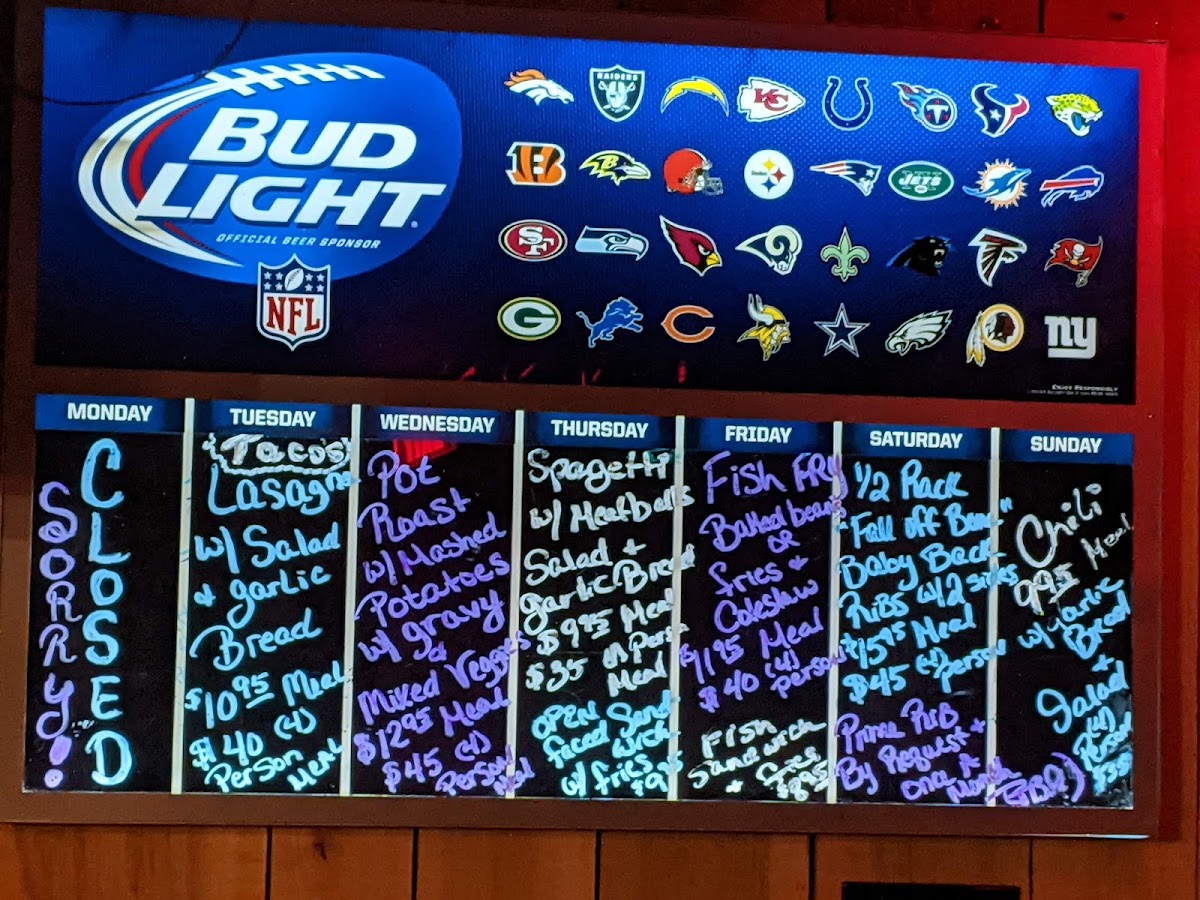 BUD
LIGHT
OFFICIAL BEER SPONSOR
NFL
RAIDERS
KC
T
Steelers
JETS
SF
G
C
ny
ENJOY RESPONSIBLY
MONDAY
SORRY!
CLOSED
TUESDAY
Taco's
Lasagna
w/ Salad
+ garlic
Bread
$10.95 Meal
$40 (4)
Person
Meal
WEDNESDAY
Pot
Roast
w/ Mashed
Potatoes
w/ gravy
&
Mixed Veggies
$12.95 Meal
$45 (4)
Person
Meal
THURSDAY
Spagetti
w/ Meatballs
Salad +
garlic Bread
$9.95 Meal
$35 Person
Meal
OPEN
faced Sand
wich
w/ fries $9.95
FRIDAY
Fish FRY
Baked beans
OR
fries &
Coleslaw
$11.95 Meal
$40 (4)
person
Fish
Sandwich
+ fries
$8.95
SATURDAY
1/2 Rack
"Fall off Bone"
Baby Back
RiBS w/ 2 sides
$15.95 Meal
$45 (4) person
Prime Rib
By Request +
once A
Month
(TBD)
SUNDAY
Chili
9.95 Meal
w/ garlic
Bread
+
Salad
(4)
Person
$35